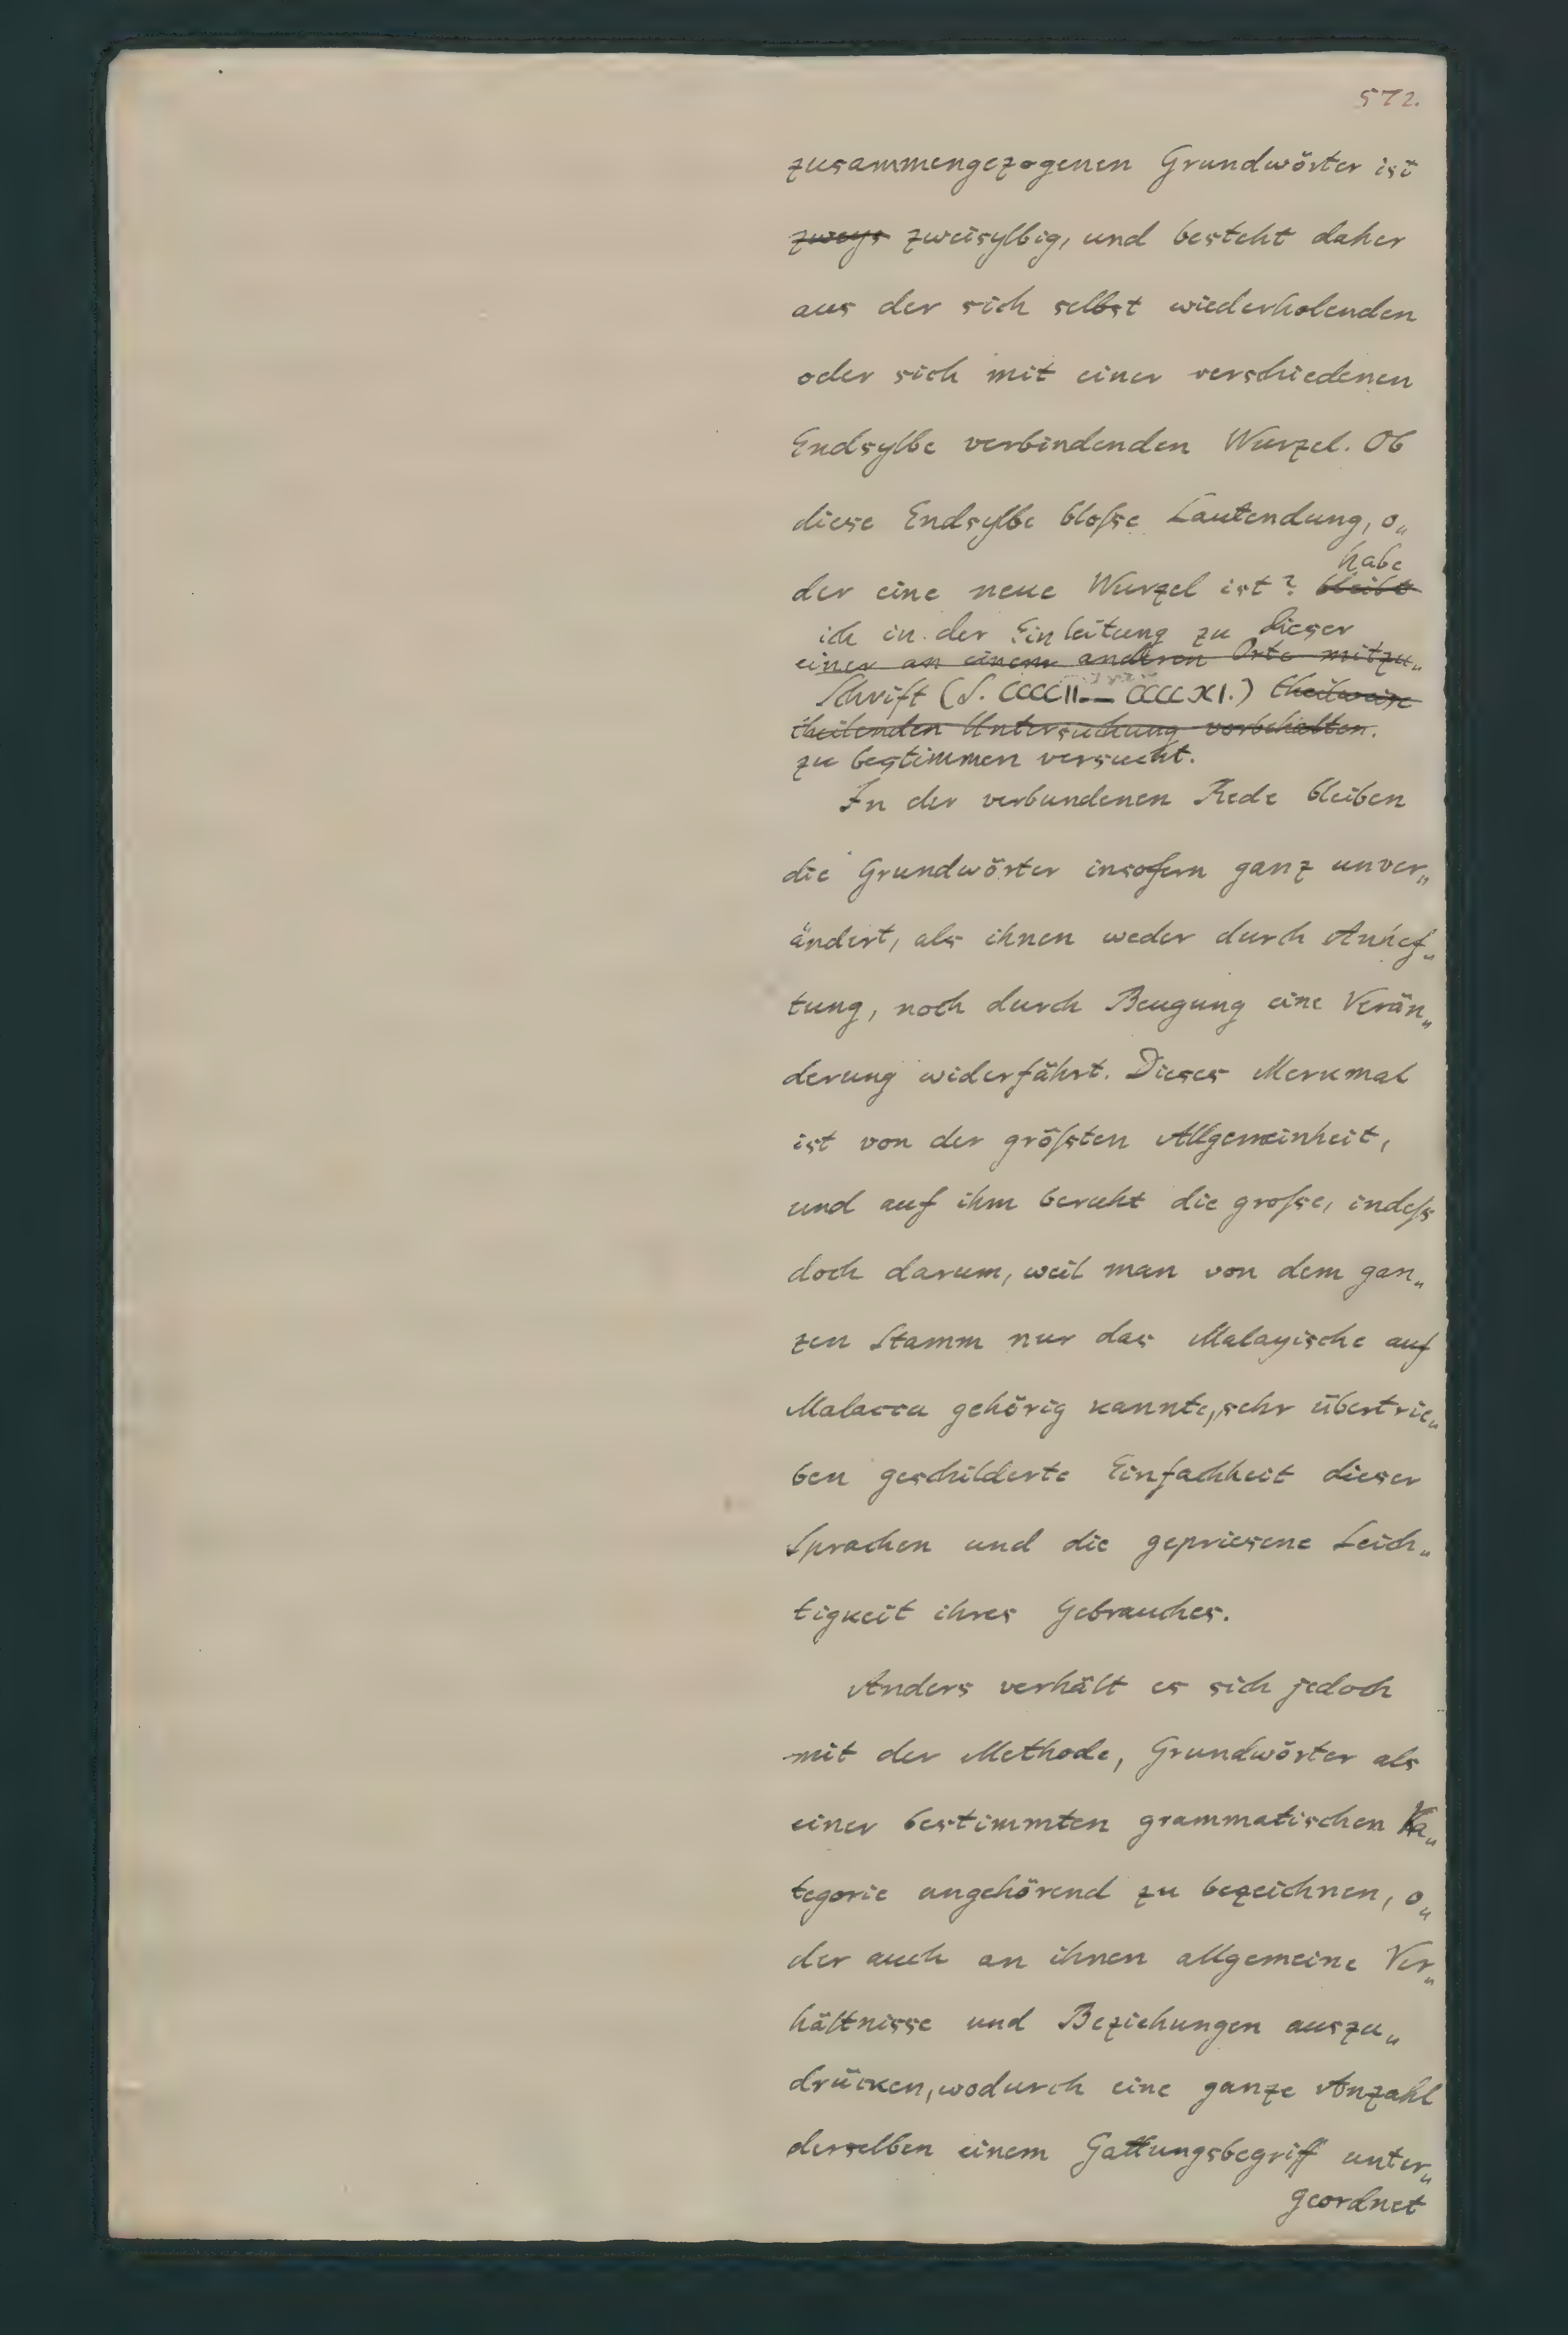 572.
zusammengezogenen Grundwörter ist
zweys zweisylbig, und besteht daher
aus der sich selbst wiederholenden
oder sich mit einer verschiedenen
Endsylbe verbindenden Wurzel. Ob
diese Endsylbe bloſse Lautendung, o„
habe
der eine neue Wurzel ist? bleibt
ich in der Einleitung zu dieser
einer an einem anderen Orte mitzu„
Schrift (S. CCCCII.— CCCCXI.) theilweise
theilenden Untersuchung vorbehalten.
zu bestimmen versucht.
In der verbundenen Rede bleiben
die Grundwörter insofern ganz unver„
ändert, als ihnen weder durch Anhef„
tung, noch durch Beugung eine Verän„
derung widerfährt. Dieses Merkmal
ist von der gröſsten Allgemeinheit,
und auf ihm beruht die groſse, indeſs
doch darum, weil man von dem gan„
zen Stamm nur das Malayische auf
Malacca gehörig kannte, sehr übertrie„
ben geschilderte Einfachheit dieser
Sprachen und die gepriesene Leich„
tigkeit ihres Gebrauches.
Anders verhält es sich jedoch
mit der Methode, Grundwörter als
einer bestimmten grammatischen Ka„
tegorie angehörend zu bezeichnen, o„
der auch an ihnen allgemeine Ver„
hältnisse und Beziehungen auszu„
drücken, wodurch eine ganze Anzahl
derselben einem Gattungsbegriff unter„
geordnet